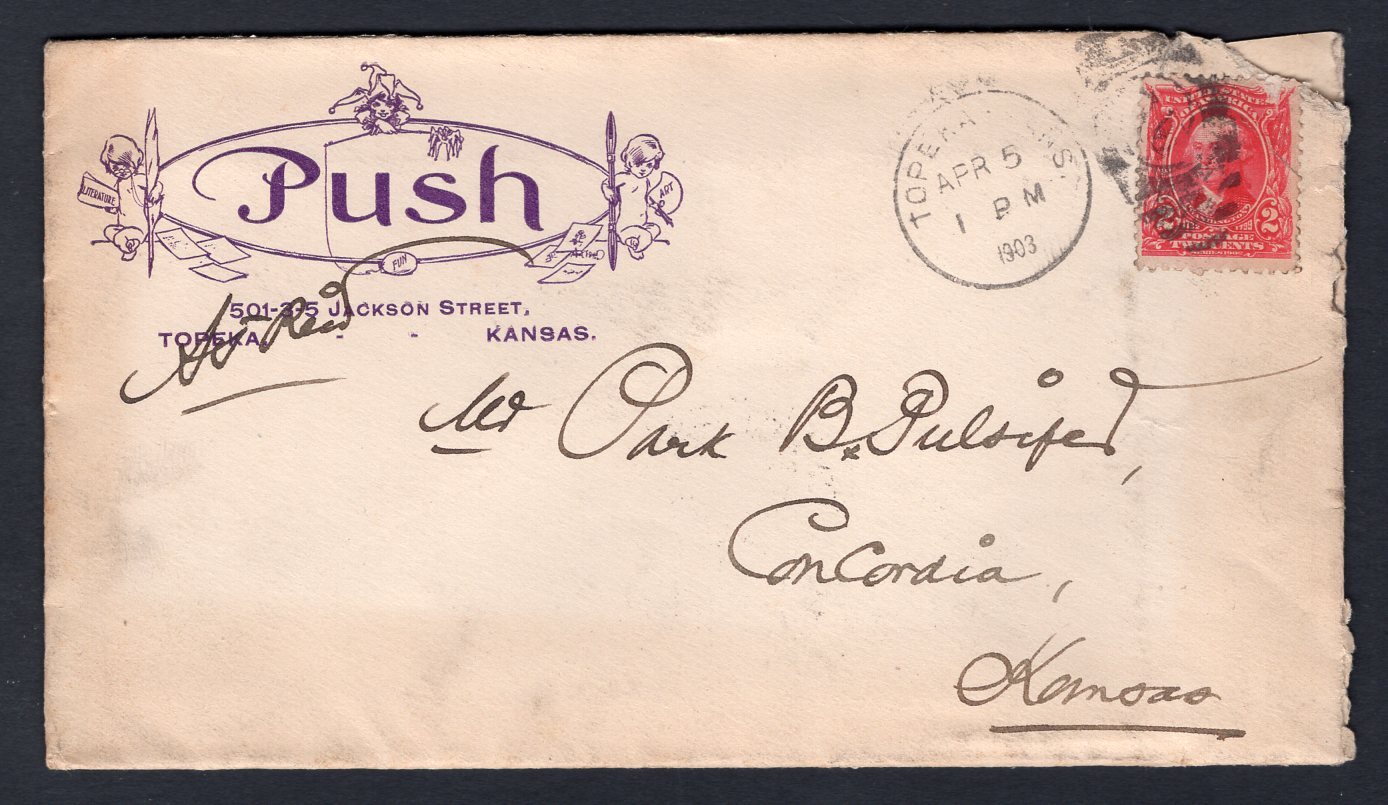 Push
LITERATURE
ART
FUN
501-3-5 JACKSON STREET,
TOPEKA, - - KANSAS.
TOPEKA KANS
APR 5
1 PM
1903
UNITED STATES
OF AMERICA
2 2
POSTAGE
TWO CENTS
SERIES 1902
Mr Park B. Pulsifer,
Concordia,
Kansas